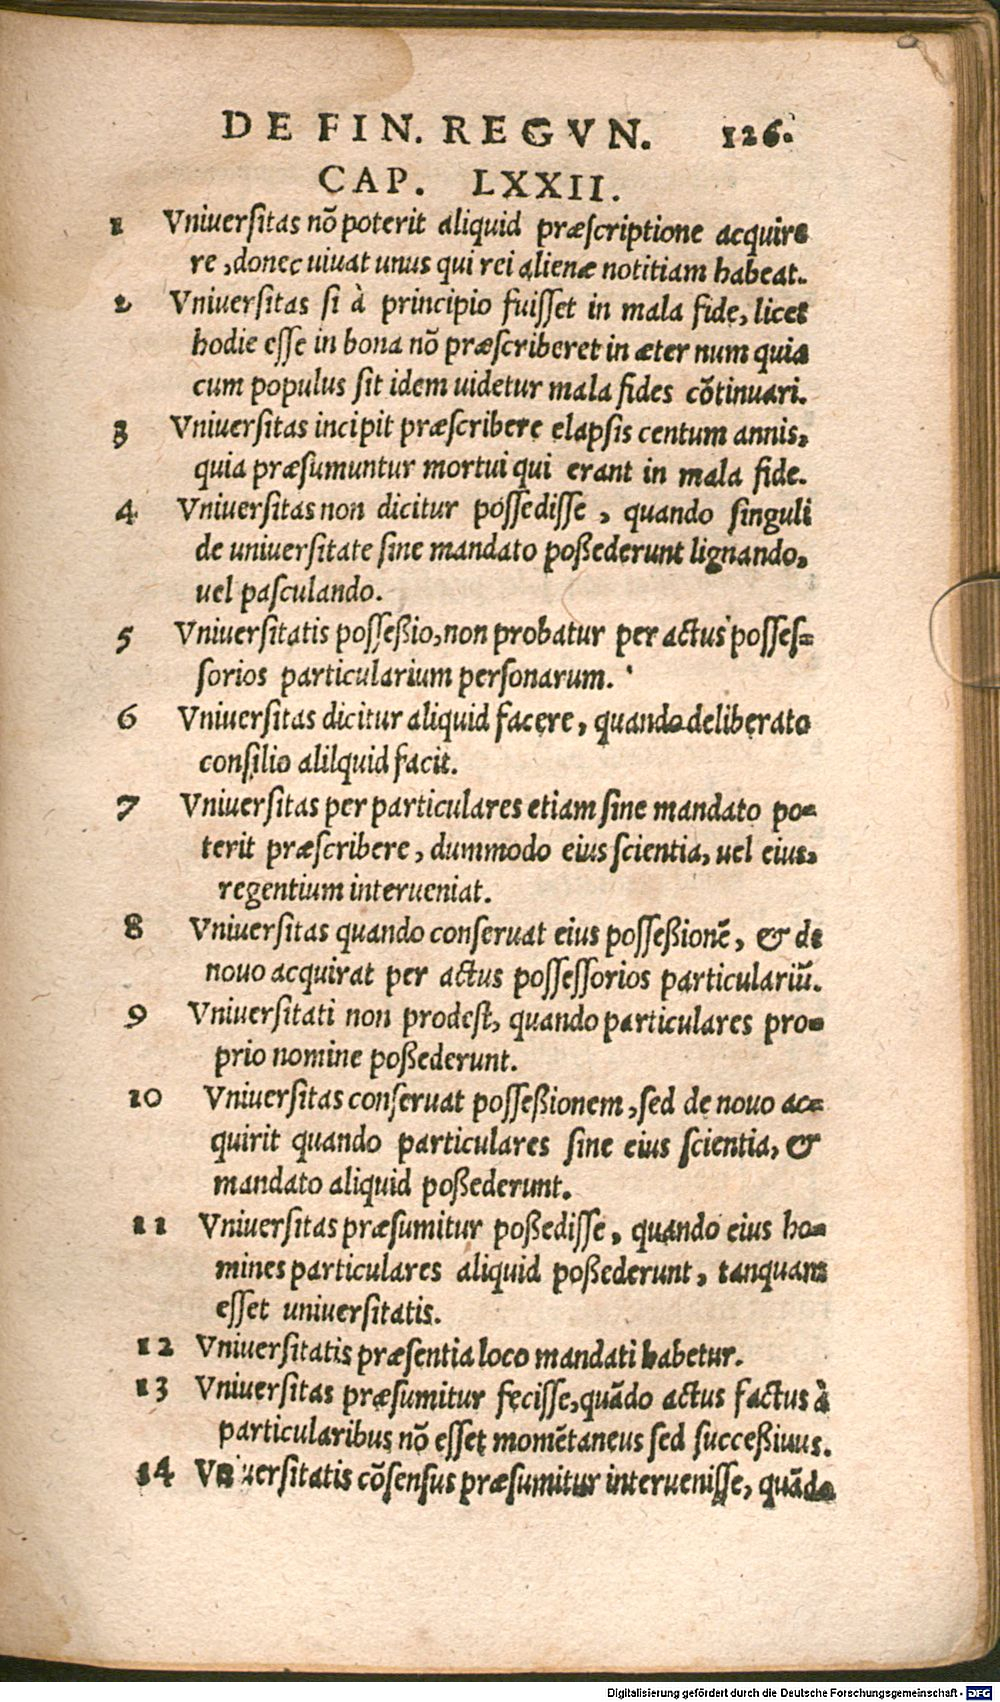 DE FIN. REGVN. 126.
CAP. LXXII.
1 Vniuersitas nõ poterit aliquid præscriptione acquire
re, donec uiuat unus qui rei alienæ notitiam habeat.
2 Vniuersitas si à principio fuisset in mala fide, licet
hodie esse in bona nõ præscriberet in æter num quia
cum populus sit idem uidetur mala fides cõtinuari.
3 Vniuersitas incipit præscribere elapsis centum annis,
quia præsumuntur mortui qui erant in mala fide.
4 Vniuersitas non dicitur possedisse, quando singuli
de uniuersitate sine mandato poßederunt lignando,
uel pasculando.
5 Vniuersitatis posseßio, non probatur per actus posses=
sorios particularium personarum.
6 Vniuersitas dicitur aliquid facere, quando deliberato
consilio alilquid facit.
7 Vniuersitas per particulares etiam sine mandato po=
terit præscribere, dummodo eius scientia, uel eius,
regentium interueniat.
8 Vniuersitas quando conseruat eius posseßionẽ, & de
nouo acquirat per actus possessorios particulariũ.
9 Vniuersitati non prodest, quando particulares pro=
prio nomine poßederunt.
10 Vniuersitas conseruat posseßionem, sed de nouo ac=
quirit quando particulares sine eius scientia, &
mandato aliquid poßederunt.
11 Vniuersitas præsumitur poßedisse, quando eius ho=
mines particulares aliquid poßederunt, tanquam
esset uniuersitatis.
12 Vniuersitatis præsentia loco mandati habetur.
13 Vniuersitas præsumitur fecisse, quãdo actus factus à
particularibus nõ esset momẽtaneus sed succeßiuus.
14 Vniuersitatis cõsensus præsumitur interuenisse, quãdo
Digitalisierung gefördert durch die Deutsche Forschungsgemeinschaft - DFG